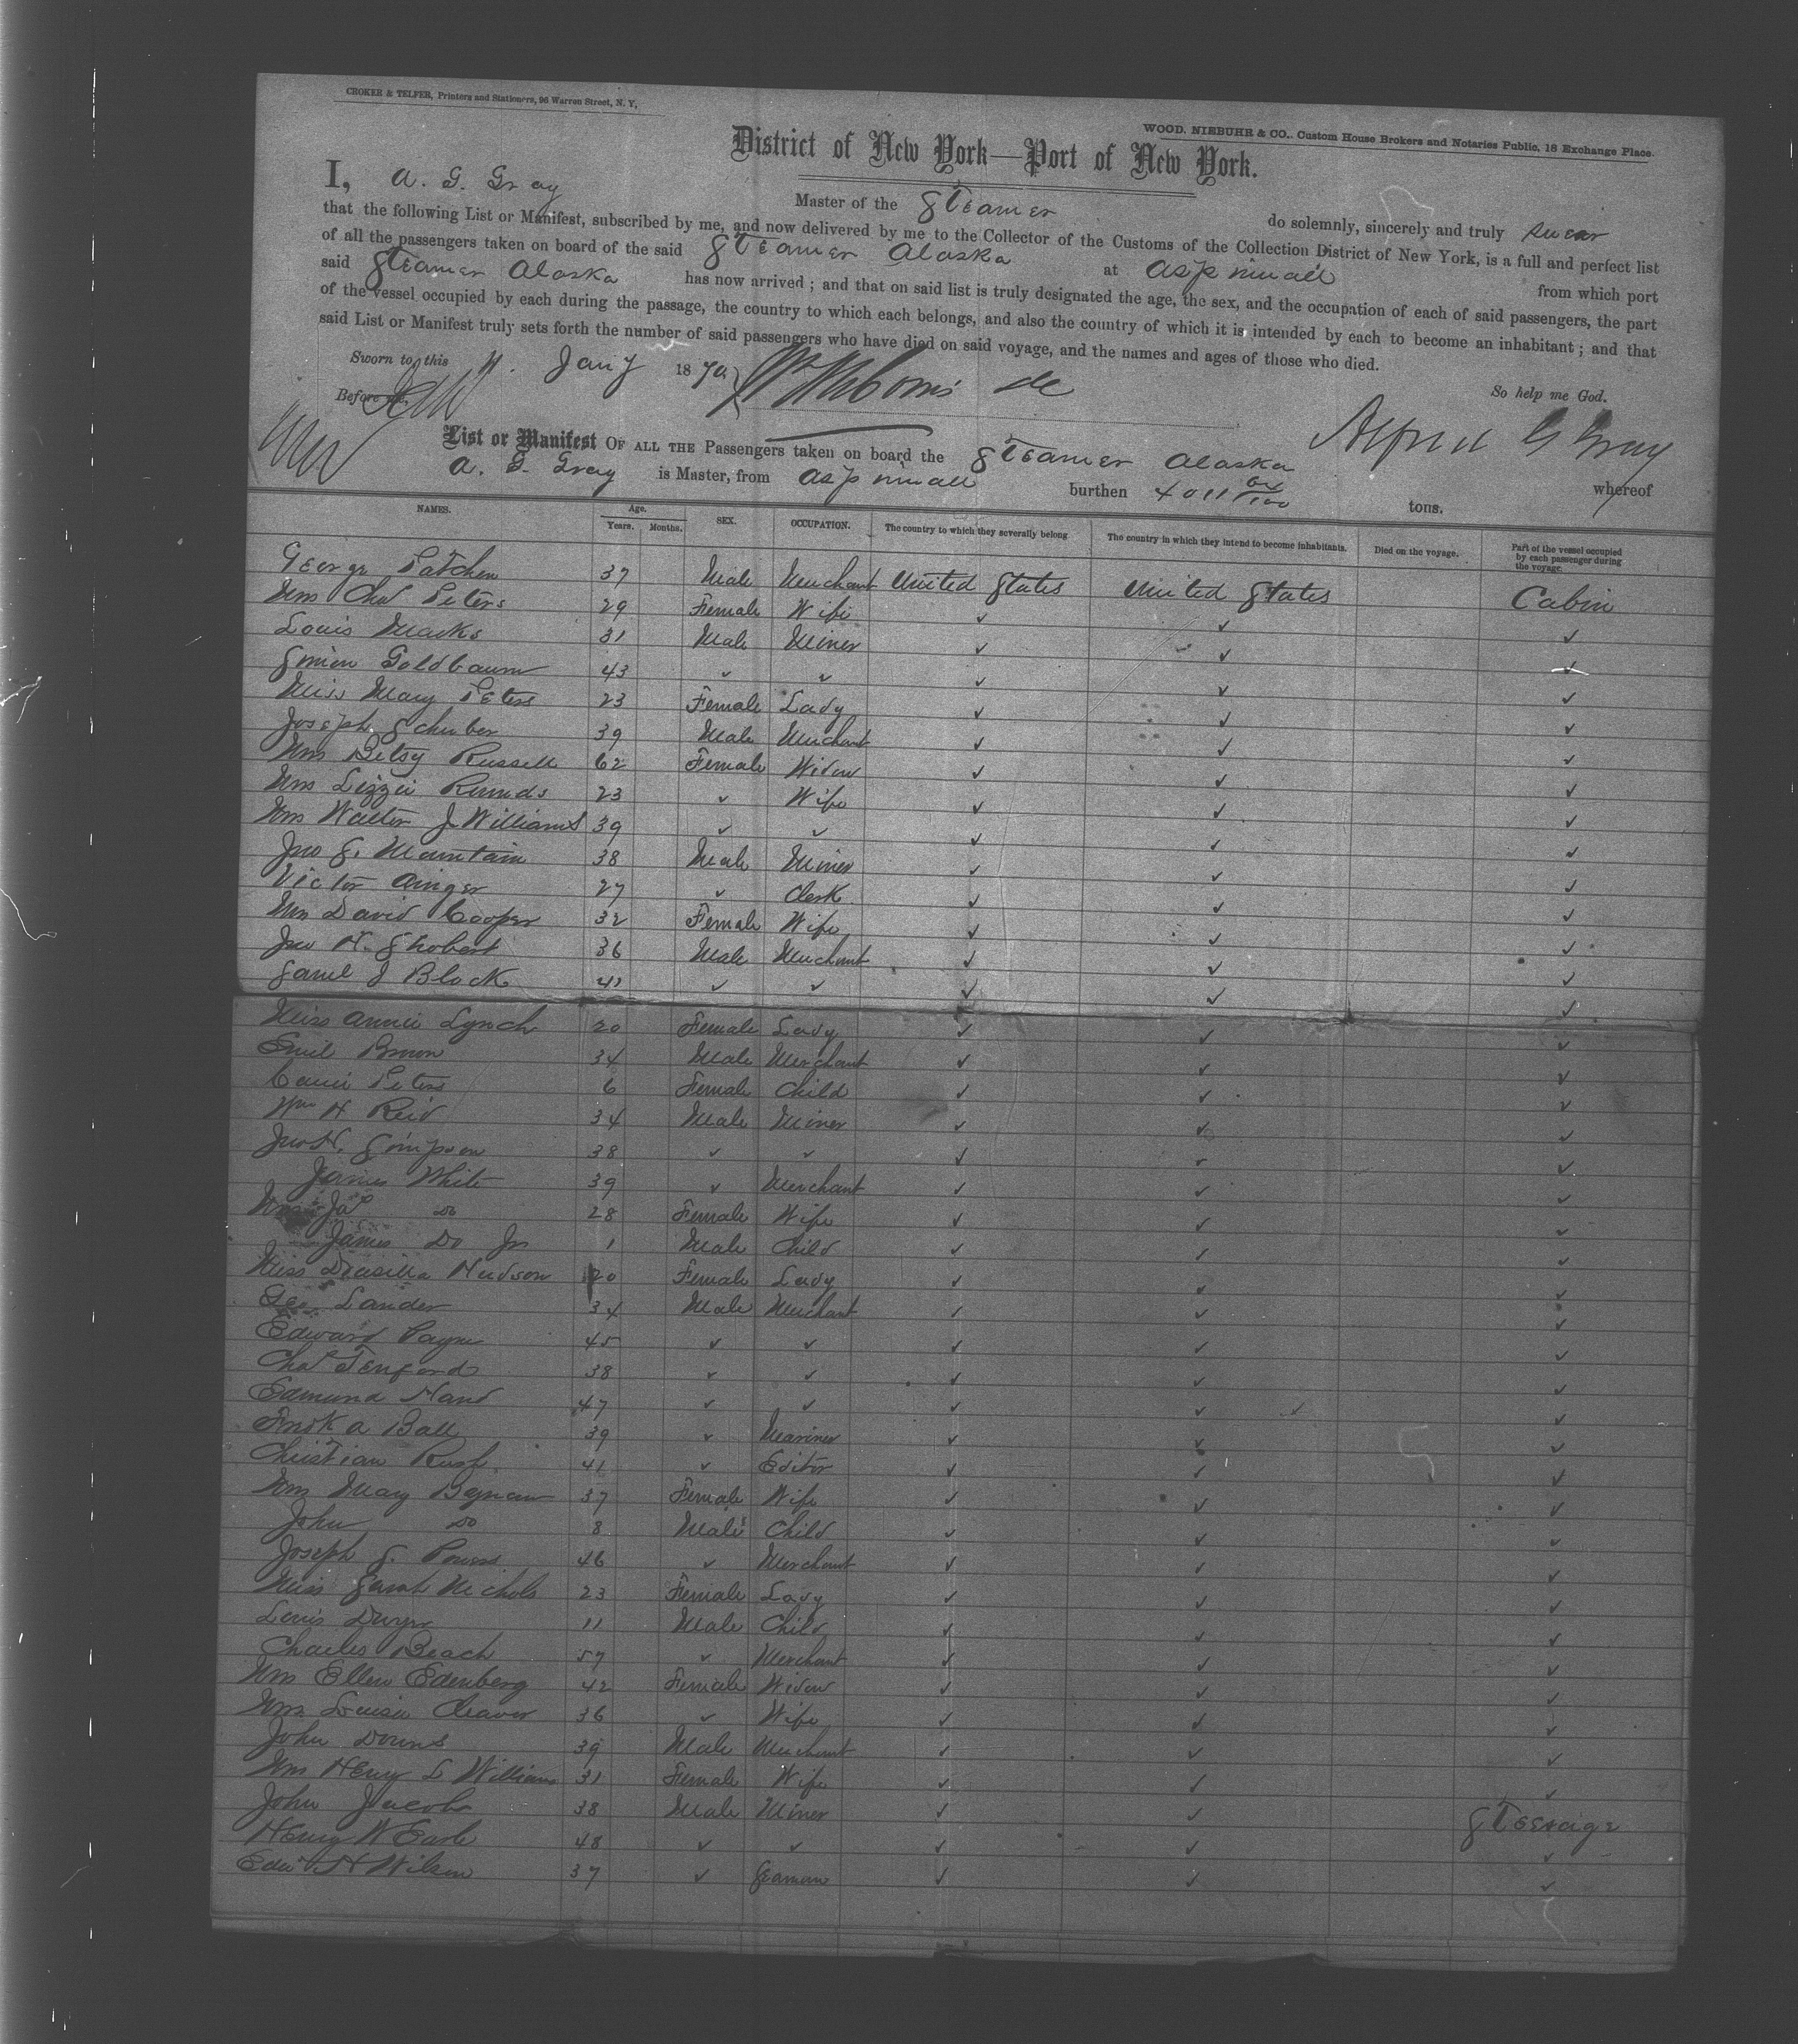 CROKER & TELFER, Printers and Stationers, 96 Warren Street, N. Y,
WOOD, NIEBUHR & CO., Custom House Brokers and Notaries Public, 18 Exchange Place.
District of New York—Port of New York.
I, A. G. Gray Master of the Steamer do solemnly, sincerely and truly swear
that the following List or Manifest, subscribed by me, and now delivered by me to the Collector of the Customs of the Collection District of New York, is a full and perfect list
of all the passengers taken on board of the said Steamer Alaska at Aspinwall from which port
said Steamer Alaska has now arrived ; and that on said list is truly designated the age, the sex, and the occupation of each of said passengers, the part
of the vessel occupied by each during the passage, the country to which each belongs, and also the country of which it is intended by each to become an inhabitant ; and that
said List or Manifest truly sets forth the number of said passengers who have died on said voyage, and the names and ages of those who died.
Sworn to this Jany 1870 So help me God.
Before
Alfred G Gray
List or Manifest OF ALL THE Passengers taken on board the Steamer Alaska whereof
A. G. Gray is Master, from Aspinwall burthen 4011 tons.
NAMES. Age. Years. Months. SEX. OCCUPATION. The country to which they severally belong. The country in which they intend to become inhabitants. Died on the voyage. Part of the vessel occupied by each passenger during the voyage.
George Patchen 37 Male Merchant United States United States Cabin
Mrs Chas Peters 29 Female Wife ✓ ✓ ✓
Louis Marks 31 Male Miner ✓ ✓ ✓
Simon Goldbaum 43 ✓ ✓ ✓ ✓ ✓
Miss Mary Peters 23 Female Lady ✓ ✓ ✓
Joseph Schuber 39 Male Merchant ✓ ✓ ✓
Mrs Betsy Russell 62 Female Widow ✓ ✓ ✓
Mrs Lizzie Rounds 23 ✓ Wife ✓ ✓ ✓
Mrs Walter J Williams 39 ✓ ✓ ✓ ✓ ✓
Jno S. Mountain 38 Male Miner ✓ ✓ ✓
Victor Ainger 27 ✓ Clerk ✓ ✓ ✓
Mrs David Cooper 32 Female Wife ✓ ✓ ✓
Jno H. Shobert 36 Male Merchant ✓ ✓ ✓
Saml J Block 41 ✓ ✓ ✓ ✓ ✓
Miss Annie Lynch 20 Female Lady ✓ ✓ ✓
Emil Brown 34 Male Merchant ✓ ✓ ✓
Carrie Peters 6 Female Child ✓ ✓ ✓
Wm H Reid 34 Male Miner ✓ ✓ ✓
Jno H. Simpson 38 ✓ ✓ ✓ ✓ ✓
James White 39 ✓ Merchant ✓ ✓ ✓
Mrs Jas Do 28 Female Wife ✓ ✓ ✓
James Do Jr 1 Male Child ✓ ✓ ✓
Miss Drasilla Hudson 20 Female Lady ✓ ✓ ✓
Geo Lander 34 Male Merchant ✓ ✓ ✓
Edward Payne 45 ✓ ✓ ✓ ✓ ✓
Chas Tenford 38 ✓ ✓ ✓ ✓ ✓
Edmund Hand 47 ✓ ✓ ✓ ✓ ✓
Fredk A Ball 39 ✓ Mariner ✓ ✓ ✓
Christian Rush 41 ✓ Editor ✓ ✓ ✓
Mrs Mary Bynam 37 Female Wife ✓ ✓ ✓
John Do 8 Male Child ✓ ✓ ✓
Joseph S. Powers 46 ✓ Merchant ✓ ✓ ✓
Miss Sarah Nichols 23 Female Lady ✓ ✓ ✓
Louis Dwyer 11 Male Child ✓ ✓ ✓
Charles Beach 57 ✓ Merchant ✓ ✓ ✓
Mrs Ellen Edenberg 42 Female Widow ✓ ✓ ✓
Mrs Louisa Cleaver 36 ✓ Wife ✓ ✓ ✓
John Downs 39 Male Merchant ✓ ✓ ✓
Mrs Henry L Williams 31 Female Wife ✓ ✓ ✓
John Jacobs 38 Male Miner ✓ ✓ Steerage
Henry W Earle 48 ✓ ✓ ✓ ✓ ✓
Edw H Wilson 37 ✓ Seaman ✓ ✓ ✓